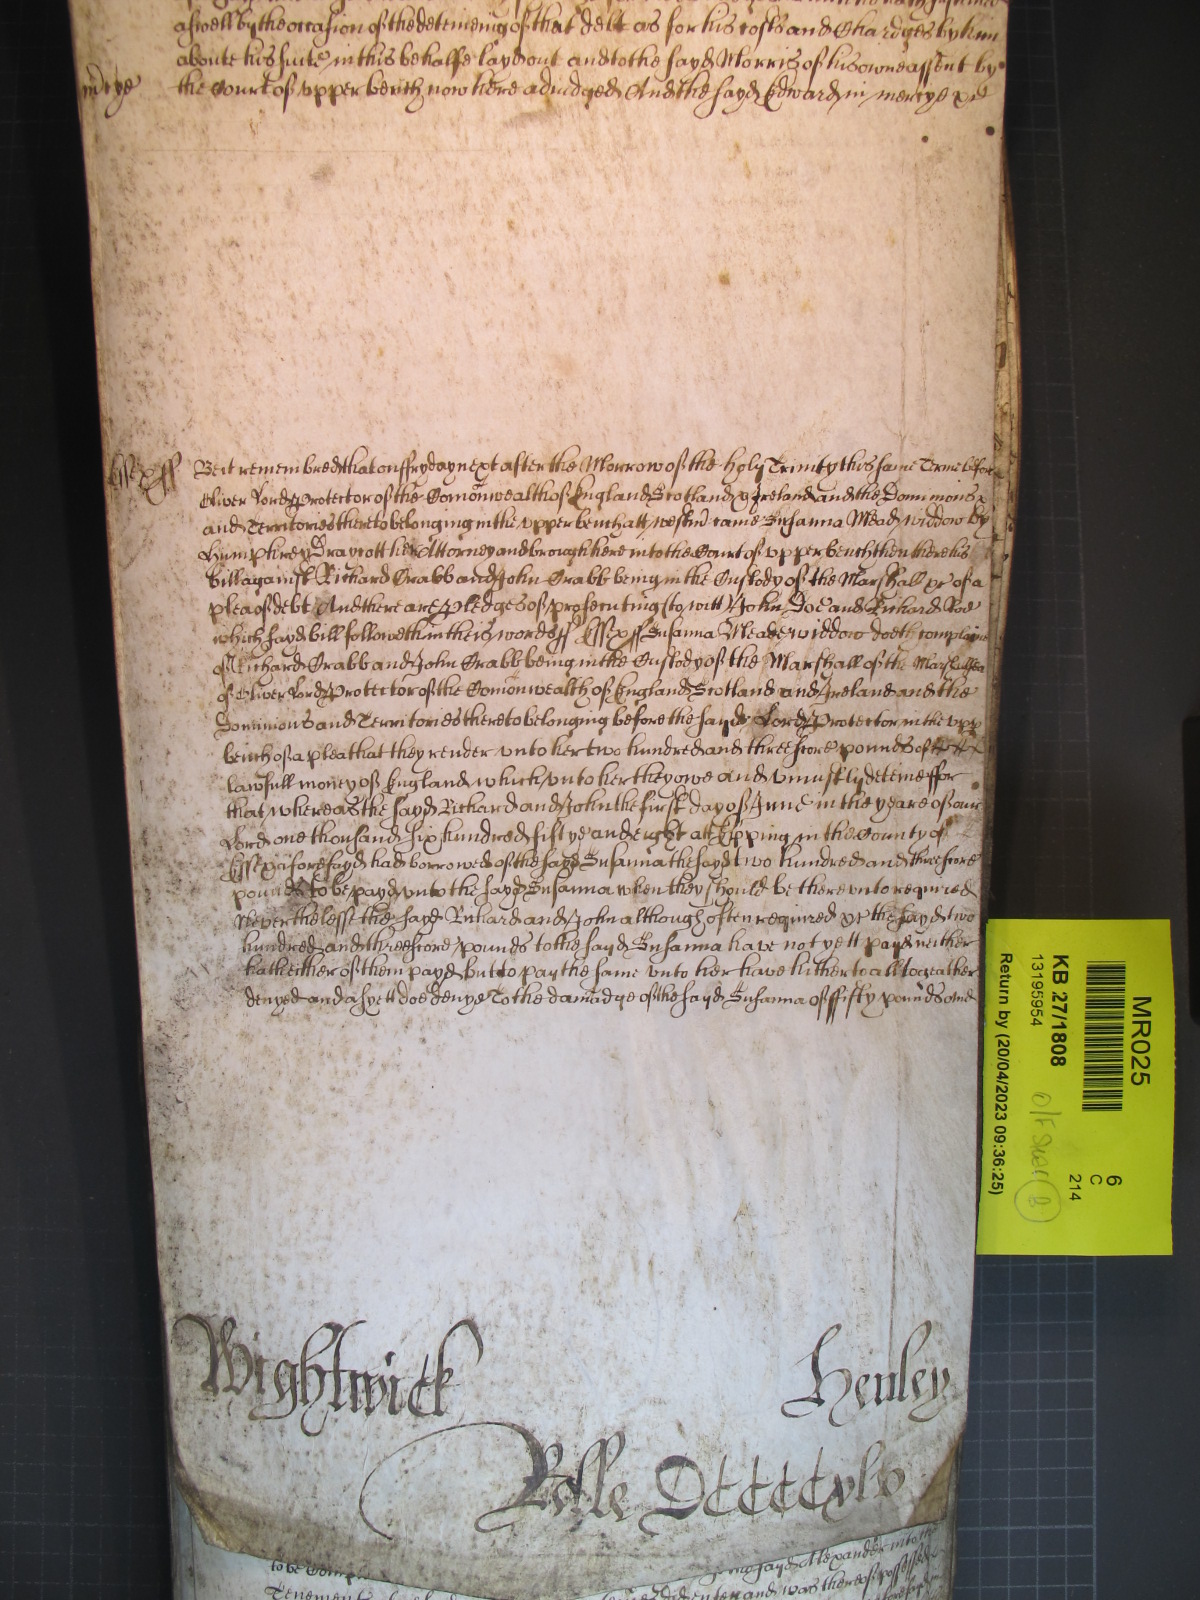 aswell by the occasion of the deteineing of that debt as for his costs and Chardges by him
aboute his suite in this behalfe layd out and to the sayd Morris of his owne assent by
the Court of upper bench now here adiudged And the sayd Edward in mercye &c
mercye
Essex ss Bee it remembred that on ffryday next after the Morrow of the holy Trinity this same Terme before
Oliver Lord Protector of the Comonwealth of England Scotland & Ireland and the Dominions
and Territories thereto belonging in the upper bench att westm came Susanna Mead widdow by
Humphrey Draycott her Attorney and brought here into the Court of upper bench then there his
bill against Richard Crabb and John Crabb being in the Custody of the Marshall &c of a
plea of debt And there are pledges of prosecuting (to witt) John Doe and Richard Roe
which sayd bill followeth in theis words ss Essex ss Susanna Meade widdow doeth complaine
of Richard Crabb and John Crabb being in the Custody of the Marshall of the Marshallsea
of Oliver Lord Protector of the Comonwealth of England Scotland and Ireland and the
Dominions and Territories thereto belonging before the sayd Lord Protector in the upp
bench of a plea that they render unto her two hundred and threescore pounds of
lawfull money of England which unto her they owe and uniustly deteine ffor
that whereas the sayd Richard and John the first day of June in the yeare of our
Lord one thousand six hundred fiftye and eight att Epping in the County of
Essex aforesayd had borrowed of the sayd Susanna the sayd two hundred and threescore
pounds to be payd unto the sayd Susanna when they should be thereunto required
Neverthelesse the sayd Richard and John although often required &c the sayd two
hundred and threescore pounds to the sayd Susanna have not yett payd neither
hath either of them payd but to pay the same unto her have hitherto altogeather
denyed and as yett doe denye To the damadge of the sayd Susanna of ffifty pounds and
Wightwick Henley
Rolle DCCCCxlv
to be
sayd Alexander into the
Tenement
did enter and was thereof possessed
MR025
KB 27/1808
13195954
Return by (20/04/2023 09:36:25)
6
C
214